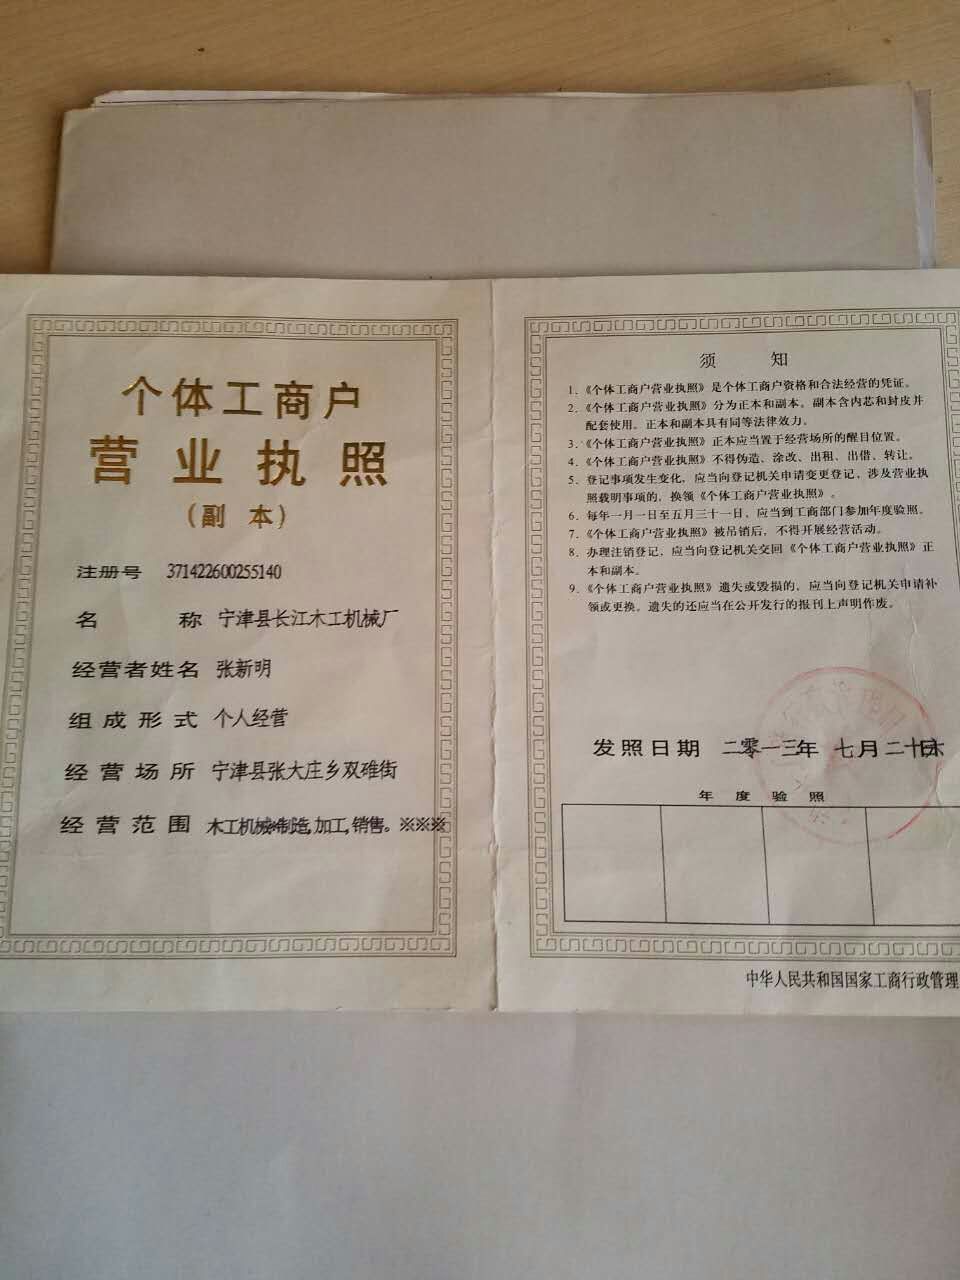 个体工商户
营业执照
(副 本)
注册号 371422600255140
名 称 宁津县长江木工机械厂
经营者姓名 张新明
组成形式 个人经营
经营场所 宁津县张大庄乡双碓街
经营范围 木工机械*制造,加工,销售。※※※
须 知
1.《个体工商户营业执照》是个体工商户资格和合法经营的凭证。
2.《个体工商户营业执照》分为正本和副本。副本含内芯和封皮并
配套使用。正本和副本具有同等法律效力。
3.《个体工商户营业执照》正本应当置于经营场所的醒目位置。
4.《个体工商户营业执照》不得伪造、涂改、出租、出借、转让。
5. 登记事项发生变化,应当向登记机关申请变更登记,涉及营业执
照载明事项的,换领《个体工商户营业执照》。
6. 每年一月一日至五月三十一日,应当到工商部门参加年度验照。
7.《个体工商户营业执照》被吊销后,不得开展经营活动。
8. 办理注销登记,应当向登记机关交回《个体工商户营业执照》正
本和副本。
9.《个体工商户营业执照》遗失或毁损的,应当向登记机关申请补
领或更换。遗失的还应当在公开发行的报刊上声明作废。
发照日期 二零一三年 七月二十六日
年 度 验 照
中华人民共和国国家工商行政管理